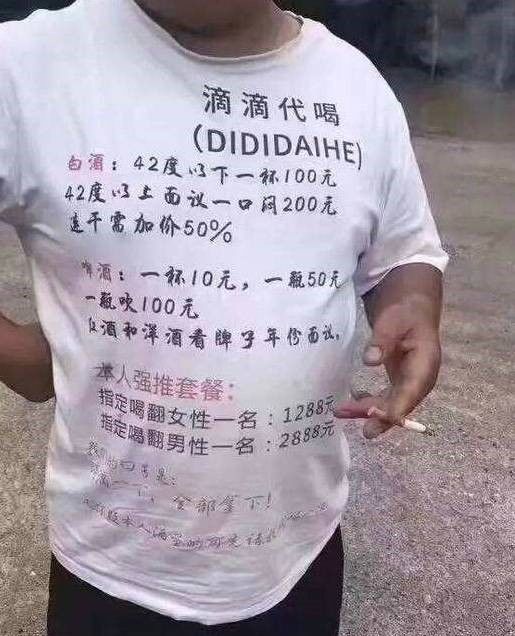 滴滴代喝
(DIDIDAIHE)
白酒：42度以下一杯100元
42度以上面议一口闷200元
连干需加价50%
啤酒：一杯10元，一瓶50元
一瓶吹100元
红酒和洋酒看牌子年份面议。
本人强推套餐：
指定喝翻女性一名：1288元
指定喝翻男性一名：2888元
我们的口号是：
滴滴一下，全部拿下！